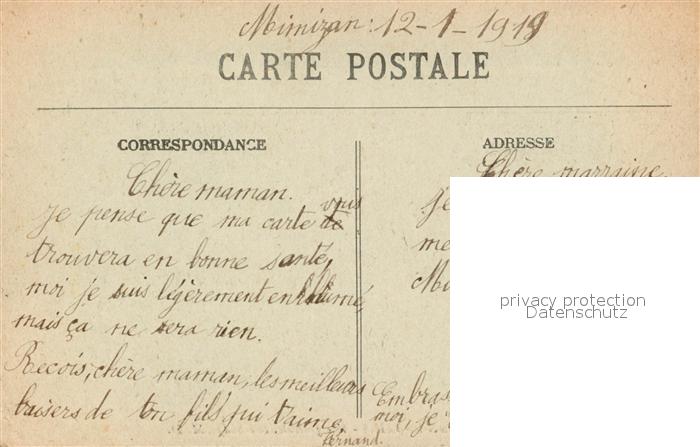 Mimizan : 12-1-1919
CARTE POSTALE
CORRESPONDANCE
Chère maman.
je pense que ma carte te vous
trouvera en bonne santé,
moi je suis légèrement enrhumé,
mais ça ne sera rien.
Recois, chère maman, les meilleurs
baisers de ton fils qui t'aime
Fernand.
ADRESSE
Chère marraine.
je
me
Embras
moi, je
privacy protection
Datenschutz